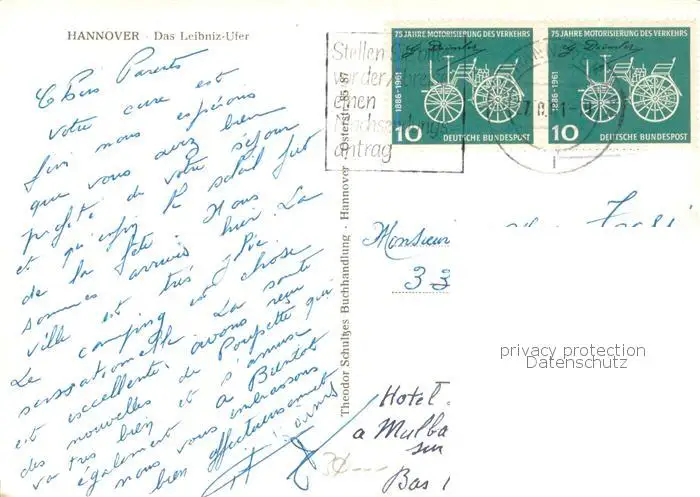 HANNOVER · Das Leibniz-Ufer
Chers Parents
votre cure est
finie nous espérons
que vous avez bien
profité de votre séjour
et qu'enfin le soleil fut
de la fête. Nous
sommes arrivés hier. La
ville est très jolie
Le camping est chose
sensationnelle. La santé
est excellente, avons reçu
des nouvelles de Poupette qui
va très bien et s'amuse
également. A Bientôt
nous vous embrassons
bien affectueusement
Theodor Schulzes Buchhandlung · Hannover · Osterstr. 85/87
Stellen Sie
vor der
einen
Nachsendungs-
antrag
75 JAHRE MOTORISIERUNG DES VERKEHRS
G. Daimler
1886-1961
10
DEUTSCHE BUNDESPOST
75 JAHRE MOTORISIERUNG DES VERKEHRS
G. Daimler
1886-1961
10
DEUTSCHE BUNDESPOST
Monsieur
33
privacy protection
Datenschutz
Hotel
a Malba
sur
Bas